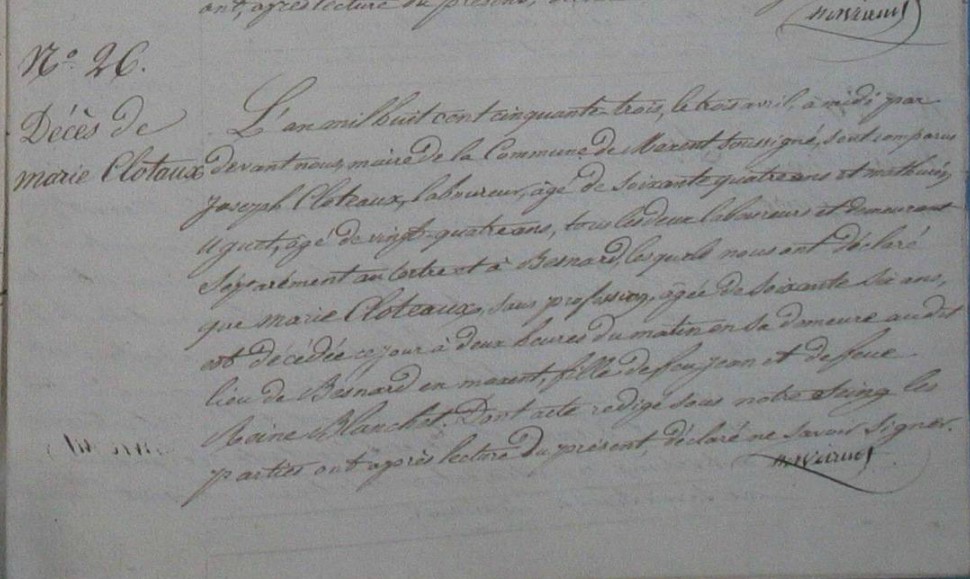 ont, après lecture du présent,
N.º 26.
Décès de
marie Clotaux
L'an mil huit cent cinquante-trois, le trois avril, à midi par
devant nous, maire de la Commune de Maxent soussigné, sont comparus
Joseph Cloteaux, laboureur, âgé de soixante quatre ans et mathurin
Uguet, âgé de vingt-quatre ans, tous les deux laboureurs et demeurant
séparément au tertre et à Besnard, lesquels nous ont déclaré
que marie Cloteaux, sans profession, âgée de soixante six ans,
est décédée ce jour à deux heures du matin en sa demeure au dit
lieu de Besnard en maxent, fille de feu jean et de feue
Reine Blanchet. Dont acte redigé sous notre seing les
parties ont après lecture du présent, déclaré ne savoir signer.